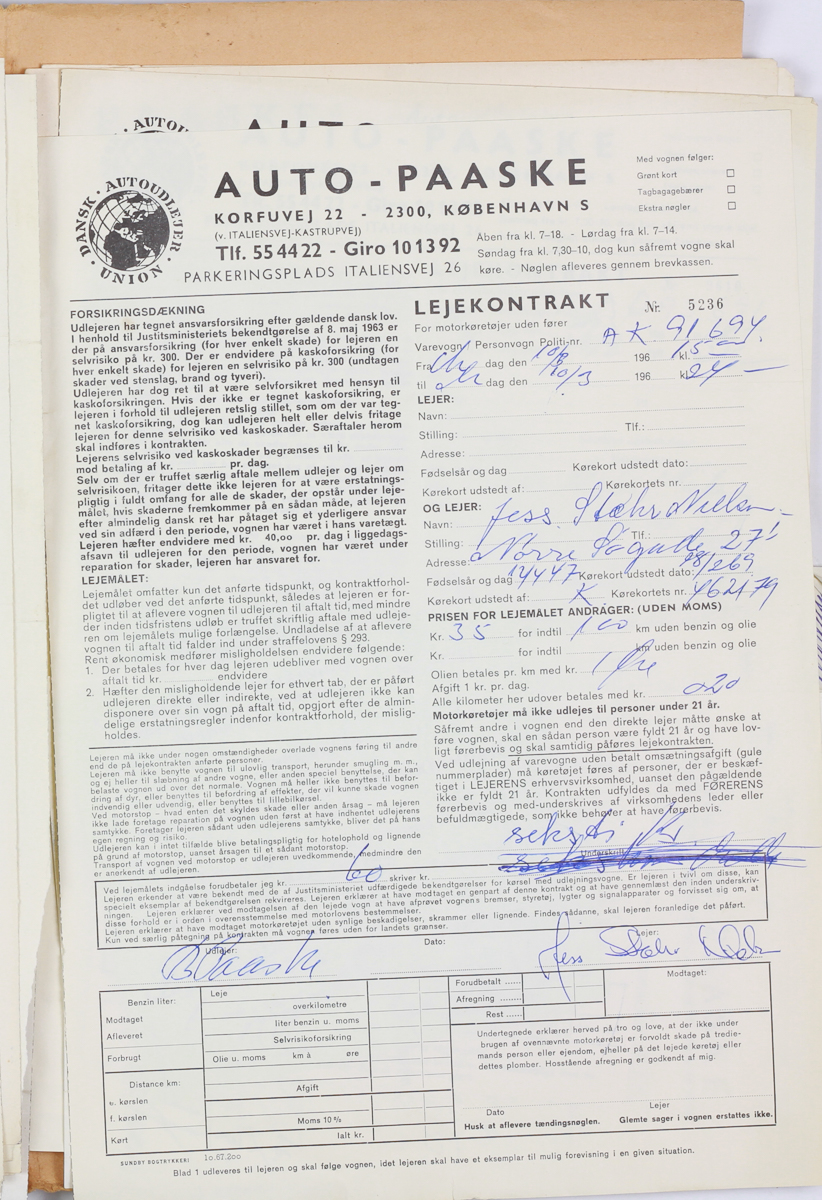 AUTO
DANSK · AUTOUDLEJER · UNION ·
AUTO - PAASKE
KORFUVEJ 22 - 2300, KØBENHAVN S
(v. ITALIENSVEJ-KASTRUPVEJ)
Tlf. 55 44 22 - Giro 10 13 92
PARKERINGSPLADS ITALIENSVEJ 26
Med vognen følger:
Grønt kort
Tagbagagebærer
Ekstra nøgler
Åben fra kl. 7-18. - Lørdag fra kl. 7-14.
Søndag fra kl. 7,30-10, dog kun såfremt vogne skal
køre. - Nøglen afleveres gennem brevkassen.
FORSIKRINGSDÆKNING
Udlejeren har tegnet ansvarsforsikring efter gældende dansk lov.
I henhold til Justitsministeriets bekendtgørelse af 8. maj 1963 er
der på ansvarsforsikring (for hver enkelt skade) for lejeren en
selvrisiko på kr. 300. Der er endvidere på kaskoforsikring (for
hver enkelt skade) for lejeren en selvrisiko på kr. 300 (undtagen
skader ved stenslag, brand og tyveri).
Udlejeren har dog ret til at være selvforsikret med hensyn til
kaskoforsikringen. Hvis der ikke er tegnet kaskoforsikring, er
lejeren i forhold til udlejeren retslig stillet, som om der var teg-
net kaskoforsikring, dog kan udlejeren helt eller delvis fritage
lejeren for denne selvrisiko ved kaskoskader. Særaftaler herom
skal indføres i kontrakten.
Lejerens selvrisiko ved kaskoskader begrænses til kr.
mod betaling af kr. pr. dag.
Selv om der er truffet særlig aftale mellem udlejer og lejer om
selvrisikoen, fritager dette ikke lejeren for at være erstatnings-
pligtig i fuldt omfang for alle de skader, der opstår under leje-
målet, hvis skaderne fremkommer på en sådan måde, at lejeren
efter almindelig dansk ret har påtaget sig et yderligere ansvar
ved sin adfærd i den periode, vognen har været i hans varetægt.
Lejeren hæfter endvidere med kr. 40,00 pr. dag i liggedags-
afsavn til udlejeren for den periode, vognen har været under
reparation for skader, lejeren har ansvaret for.
LEJEMÅLET:
Lejemålet omfatter kun det anførte tidspunkt, og kontraktforhol-
det udløber ved det anførte tidspunkt, således at lejeren er for-
pligtet til at aflevere vognen til udlejeren til aftalt tid, med mindre
der inden tidsfristens udløb er truffet skriftlig aftale med udleje-
ren om lejemålets mulige forlængelse. Undladelse af at aflevere
vognen til aftalt tid falder ind under straffelovens § 293.
Rent økonomisk medfører misligholdelsen endvidere følgende:
1. Der betales for hver dag lejeren udebliver med vognen over
aftalt tid kr. endvidere
2. Hæfter den misligholdende lejer for ethvert tab, der er påført
udlejeren direkte eller indirekte, ved at udlejeren ikke kan
disponere over sin vogn på aftalt tid, opgjort efter de almin-
delige erstatningsregler indenfor kontraktforhold, der mislig-
holdes.
Lejeren må ikke under nogen omstændigheder overlade vognens føring til andre
end de på lejekontrakten anførte personer.
Lejeren må ikke benytte vognen til ulovlig transport, herunder smugling m. m.,
og ej heller til slæbning af andre vogne, eller anden speciel benyttelse, der kan
belaste vognen ud over det normale. Vognen må heller ikke benyttes til befor-
dring af dyr, eller benyttes til befordring af effekter, der vil kunne skade vognen
indvendig eller udvendig, eller benyttes til lillebilkørsel.
Ved motorstop - hvad enten det skyldes skade eller anden årsag - må lejeren
ikke lade foretage reparation på vognen uden først at have indhentet udlejerens
samtykke. Foretager lejeren sådant uden udlejerens samtykke, bliver det på hans
egen regning og risiko.
Udlejeren kan i intet tilfælde blive betalingspligtig for hotelophold og lignende
på grund af motorstop, uanset årsagen til et sådant motorstop.
Transport af vognen ved motorstop er udlejeren uvedkommende, medmindre den
er anerkendt af udlejeren.
LEJEKONTRAKT Nr. 5236
For motorkøretøjer uden fører
Varevogn Personvogn Politi-nr. AK 91.694
Fra dag den 10/3 196 kl. 15
til dag den 10/3 196 kl. 24 -
LEJER:
Navn:
Stilling: Tlf.:
Adresse:
Fødselsår og dag Kørekort udstedt dato:
Kørekort udstedt af: Kørekortets nr.
OG LEJER:
Navn: Jess Stæhr Nielsen
Stilling: Tlf.:
Adresse: Nørre Søgade 27
Fødselsår og dag 14447 Kørekort udstedt dato: 98/269
Kørekort udstedt af: K Kørekortets nr. 462179
PRISEN FOR LEJEMÅLET ANDRAGER: (UDEN MOMS)
Kr. 35 for indtil 100 km uden benzin og olie
Kr. for indtil km uden benzin og olie
Olien betales pr. km med kr. 1 Øre
Afgift 1 kr. pr. dag.
Alle kilometer her udover betales med kr. 020
Motorkøretøjer må ikke udlejes til personer under 21 år.
Såfremt andre i vognen end den direkte lejer måtte ønske at
føre vognen, skal en sådan person være fyldt 21 år og have lov-
ligt førerbevis og skal samtidig påføres lejekontrakten.
Ved udlejning af varevogne uden betalt omsætningsafgift (gule
nummerplader) må køretøjet føres af personer, der er beskæf-
tiget i LEJERENS erhvervsvirksomhed, uanset den pågældende
ikke er fyldt 21 år. Kontrakten udfyldes da med FØRERENS
førerbevis og med-underskrives af virksomhedens leder eller
befuldmægtigede, som ikke behøver at have førerbevis.
Underskrift
Ved lejemålets indgåelse forudbetaler jeg kr. 60 skriver kr. seksti Kr
Lejeren erkender at være bekendt med de af Justitsministeriet udfærdigede bekendtgørelser for kørsel med udlejningsvogne. Er lejeren i tvivl om disse, kan
specielt eksemplar af bekendtgørelsen rekvireres. Lejeren erklærer at have modtaget en genpart af denne kontrakt og at have gennemlæst den inden underskriv-
ningen. Lejeren erklærer ved modtagelsen af den lejede vogn at have afprøvet vognens bremser, styretøj, lygter og signalapparater og forvisset sig om, at
disse forhold er i orden i overensstemmelse med motorlovens bestemmelser.
Lejeren erklærer at have modtaget motorkøretøjet uden synlige beskadigelser, skrammer eller lignende. Findes sådanne, skal lejeren foranledige det påført.
Kun ved særlig påtegning på kontrakten må vognen føres uden for landets grænser.
Udlejer: Dato: Lejer:
B Paaske Jess Stæhr Nielsen
Benzin liter:
Modtaget
Afleveret
Forbrugt
Distance km:
u. kørslen
f. kørslen
Kørt
Leje
overkilometre
liter benzin u. moms
Selvrisikoforsikring
Olie u. moms km à øre
Afgift
Moms 10%
Ialt kr.
Forudbetalt
Afregning
Rest
Modtaget:
Undertegnede erklærer herved på tro og love, at der ikke under
brugen af ovennævnte motorkøretøj er forvoldt skade på tredie-
mands person eller ejendom, ejheller på det lejede køretøj eller
dettes plomber. Hosstående afregning er godkendt af mig.
Dato Lejer
Husk at aflevere tændingsnøglen. Glemte sager i vognen erstattes ikke.
SUNDBY BOGTRYKKERI 10.67.200
Blad 1 udleveres til lejeren og skal følge vognen, idet lejeren skal have et eksemplar til mulig forevisning i en given situation.